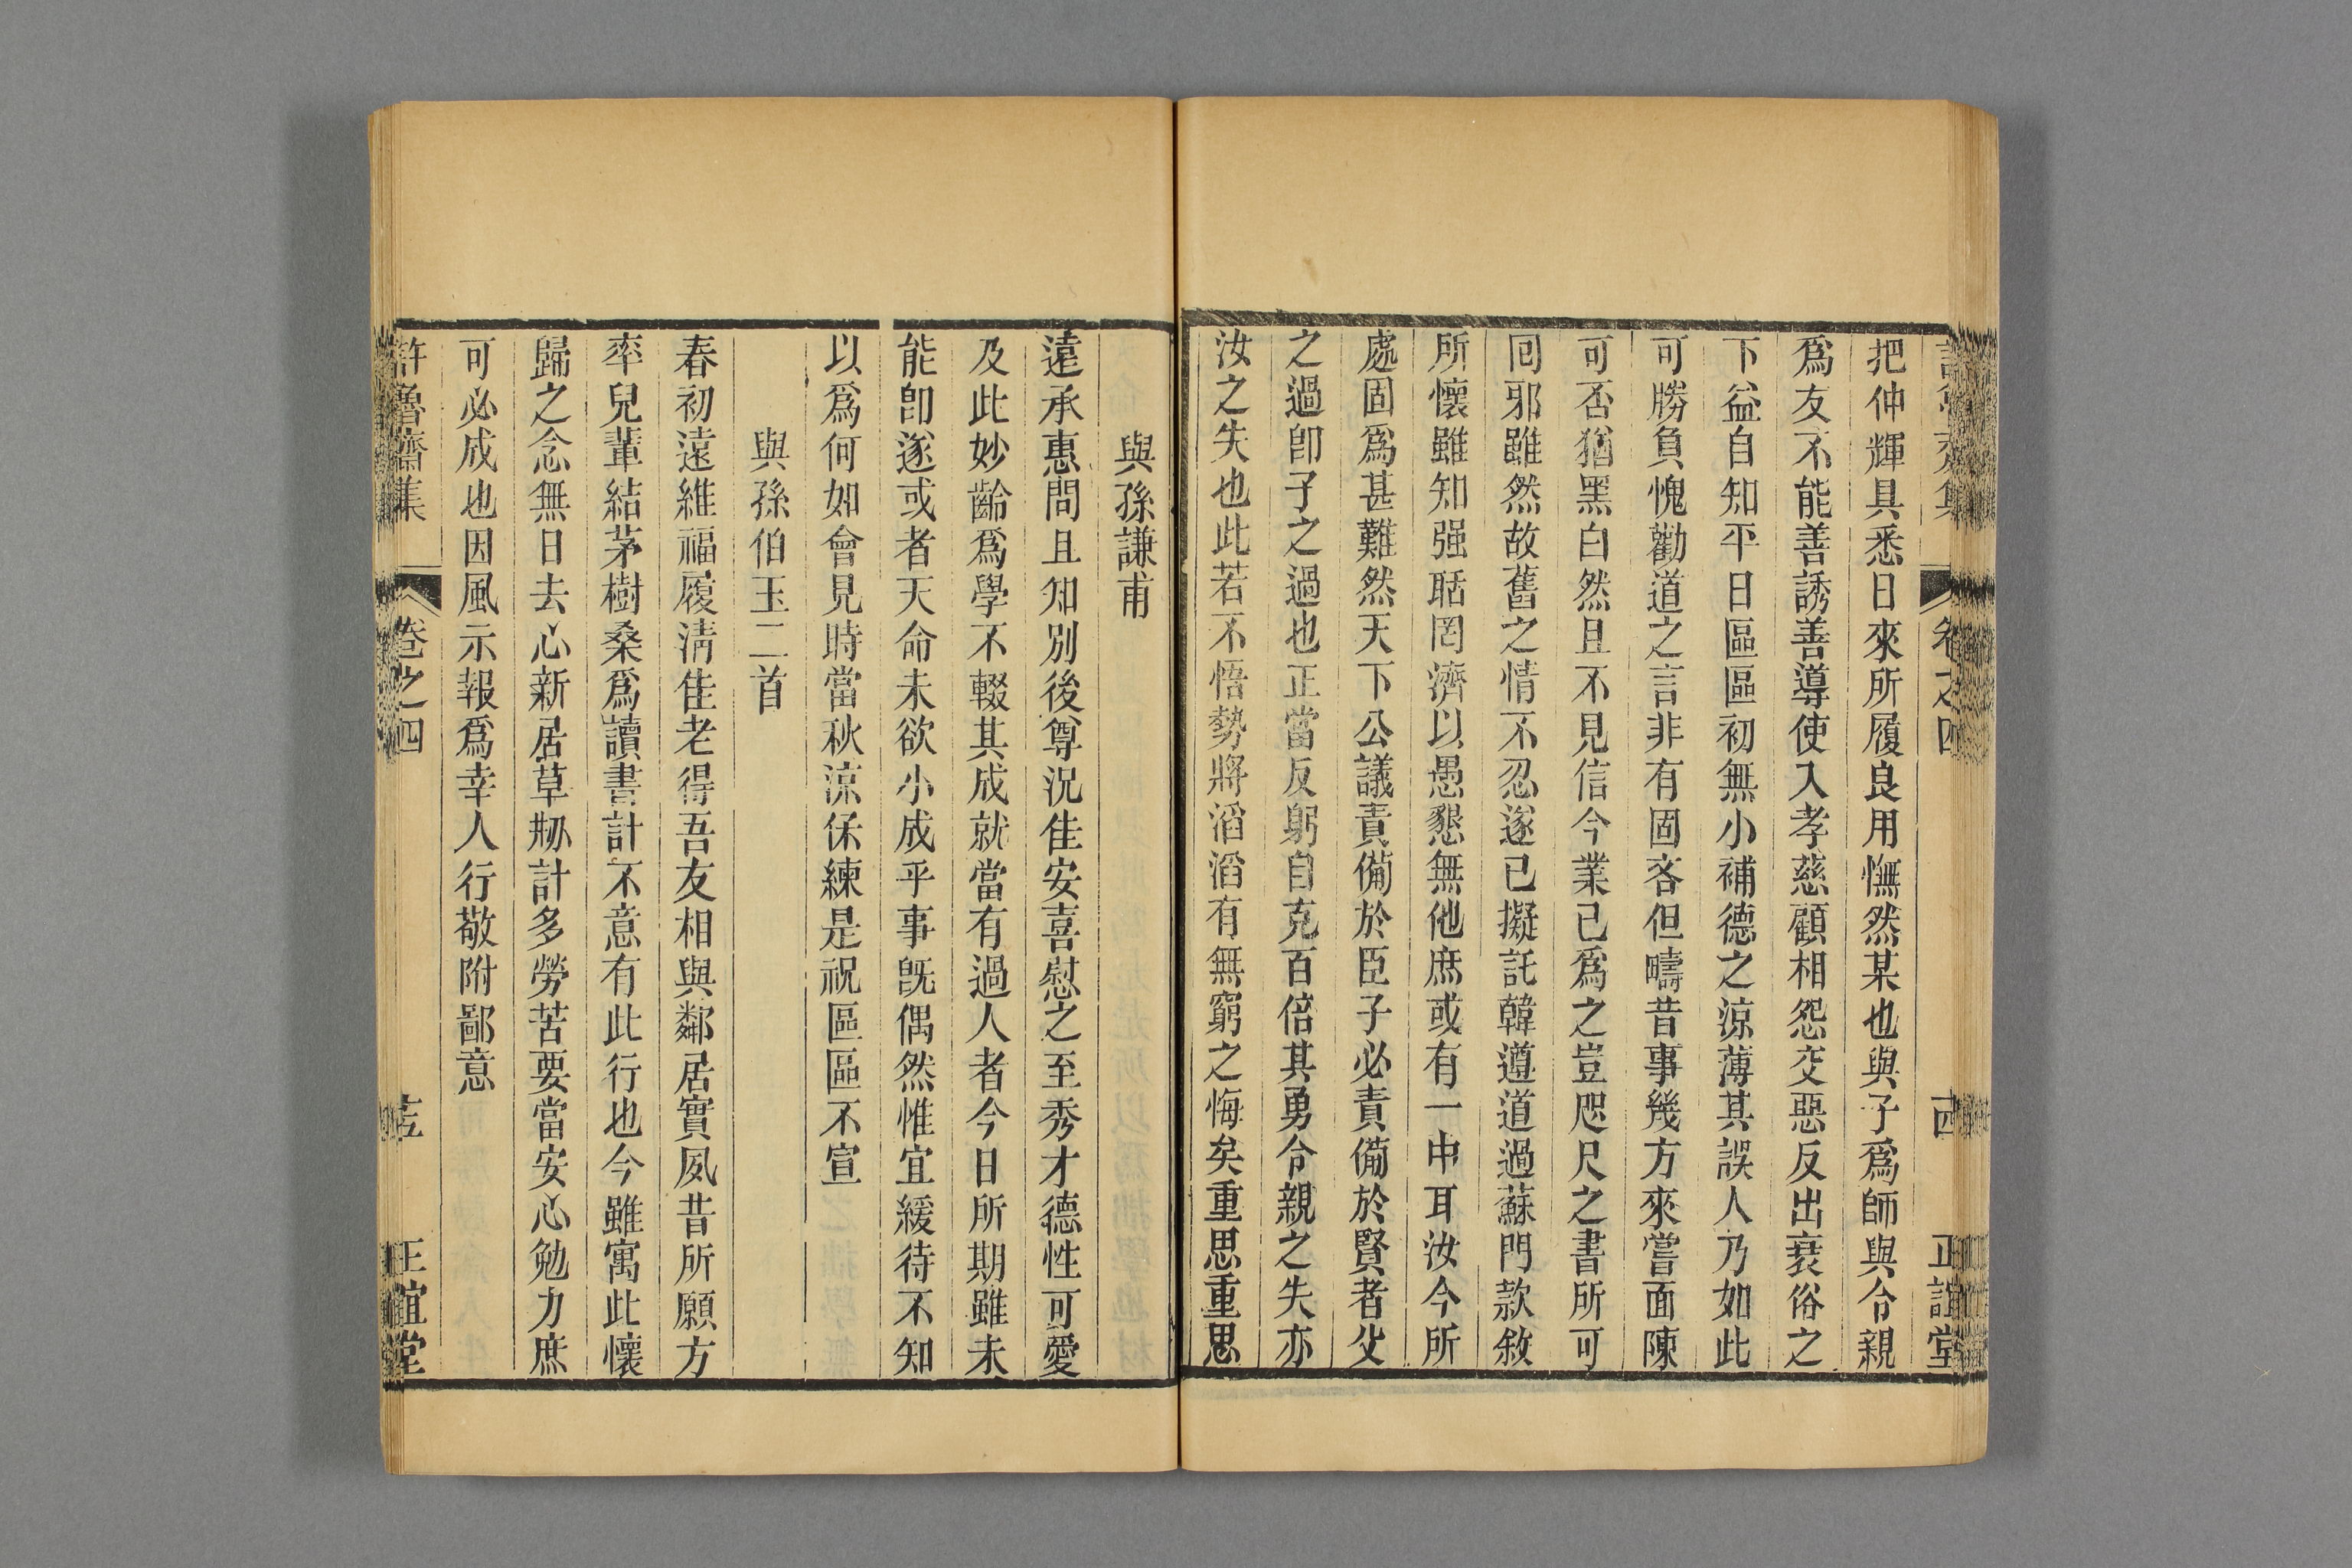 把仲輝具悉日來所履良用憮然某也與子爲師與令親
爲友不能善誘善導使入孝慈顧相怨交惡反出衰俗之
下益自知平日區區初無小補德之涼薄其誤人乃如此
可勝負愧勸道之言非有固吝但疇昔事幾方來嘗面陳
可否猶黑白然且不見信今業已爲之豈咫尺之書所可
囘邪雖然故舊之情不忍遂已擬託韓遵道過蘇門款敘
所懷雖知强聒罔濟以愚懇無他庶或有一中耳汝今所
處固爲甚難然天下公議責備於臣子必責備於賢者父
之過卽子之過也正當反躬自克百倍其勇令親之失亦
汝之失也此若不悟勢將滔滔有無窮之悔矣重思重思
與孫謙甫
遠承惠問且知別後尊況佳安喜慰之至秀才德性可愛
及此妙齡爲學不輟其成就當有過人者今日所期雖未
能卽遂或者天命未欲小成乎事旣偶然惟宜緩待不知
以爲何如會見時當秋涼保練是祝區區不宣
與孫伯玉二首
春初遠維福履淸佳老得吾友相與鄰居實夙昔所願方
率兒輩結茅樹桑爲讀書計不意有此行也今雖寓此懷
歸之念無日去心新居草刱計多勞苦要當安心勉力庶
可必成也因風示報爲幸人行敬附鄙意
許魯齋集
卷之四
正誼堂